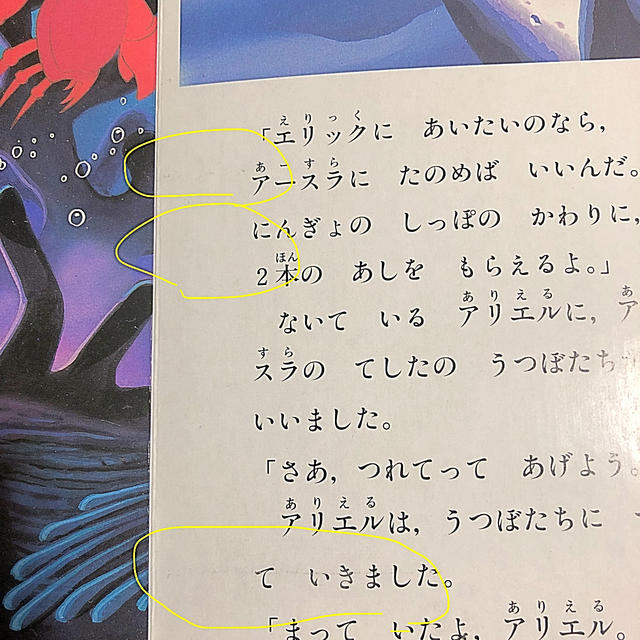 「エリックに あいたいのなら,
アースラに たのめば いいんだ。
にんぎょの しっぽの かわりに,
2本の あしを もらえるよ。」
ないて いる アリエルに, ア
スラの てしたの うつぼたち
いいました。
「さあ, つれてって あげよう。
アリエルは, うつぼたちに
て いきました。
「まって いたよ, アリエル。